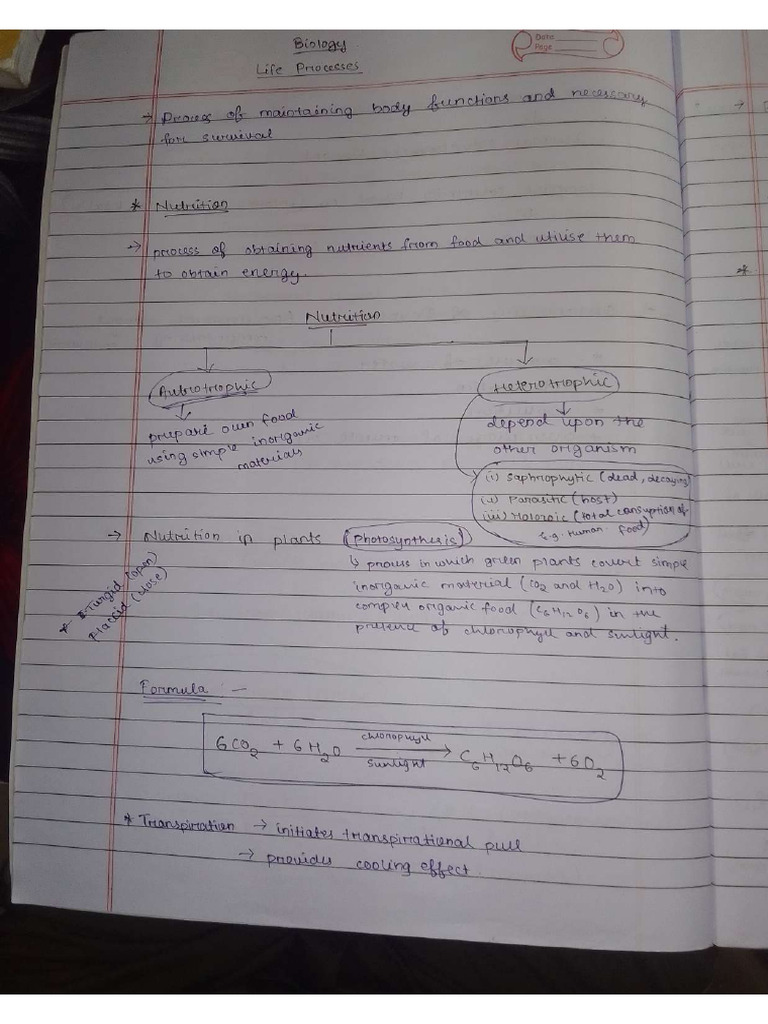 Biology
Date
Page
Life Processes
→ Process of maintaining body functions and necessary
for survival
* Nutrition
→ process of obtaining nutrients from food and utilise them
to obtain energy.
Nutrition
Autotrophic
Heterotrophic
prepare own food
using simple inorganic
materials
depend upon the
other organism
(i) Saphrophytic (dead, decaying)
(ii) Parasitic (host)
(iii) Holozoic (total consuption of
e.g. Human food)
→ Nutrition in plants (Photosynthesis)
↳ process in which green plants covert simple
inorganic material (CO2 and H2O) into
complex organic food (C6H12O6) in the
presence of chlorophyll and sunlight.
* Turgid (open)
Flaccid (close)
Formula :-
6CO2 + 6H2O chlorophyll sunlight → C6H12O6 + 6O2
* Transpiration → initiates transpirational pull
→ provides cooling effect.